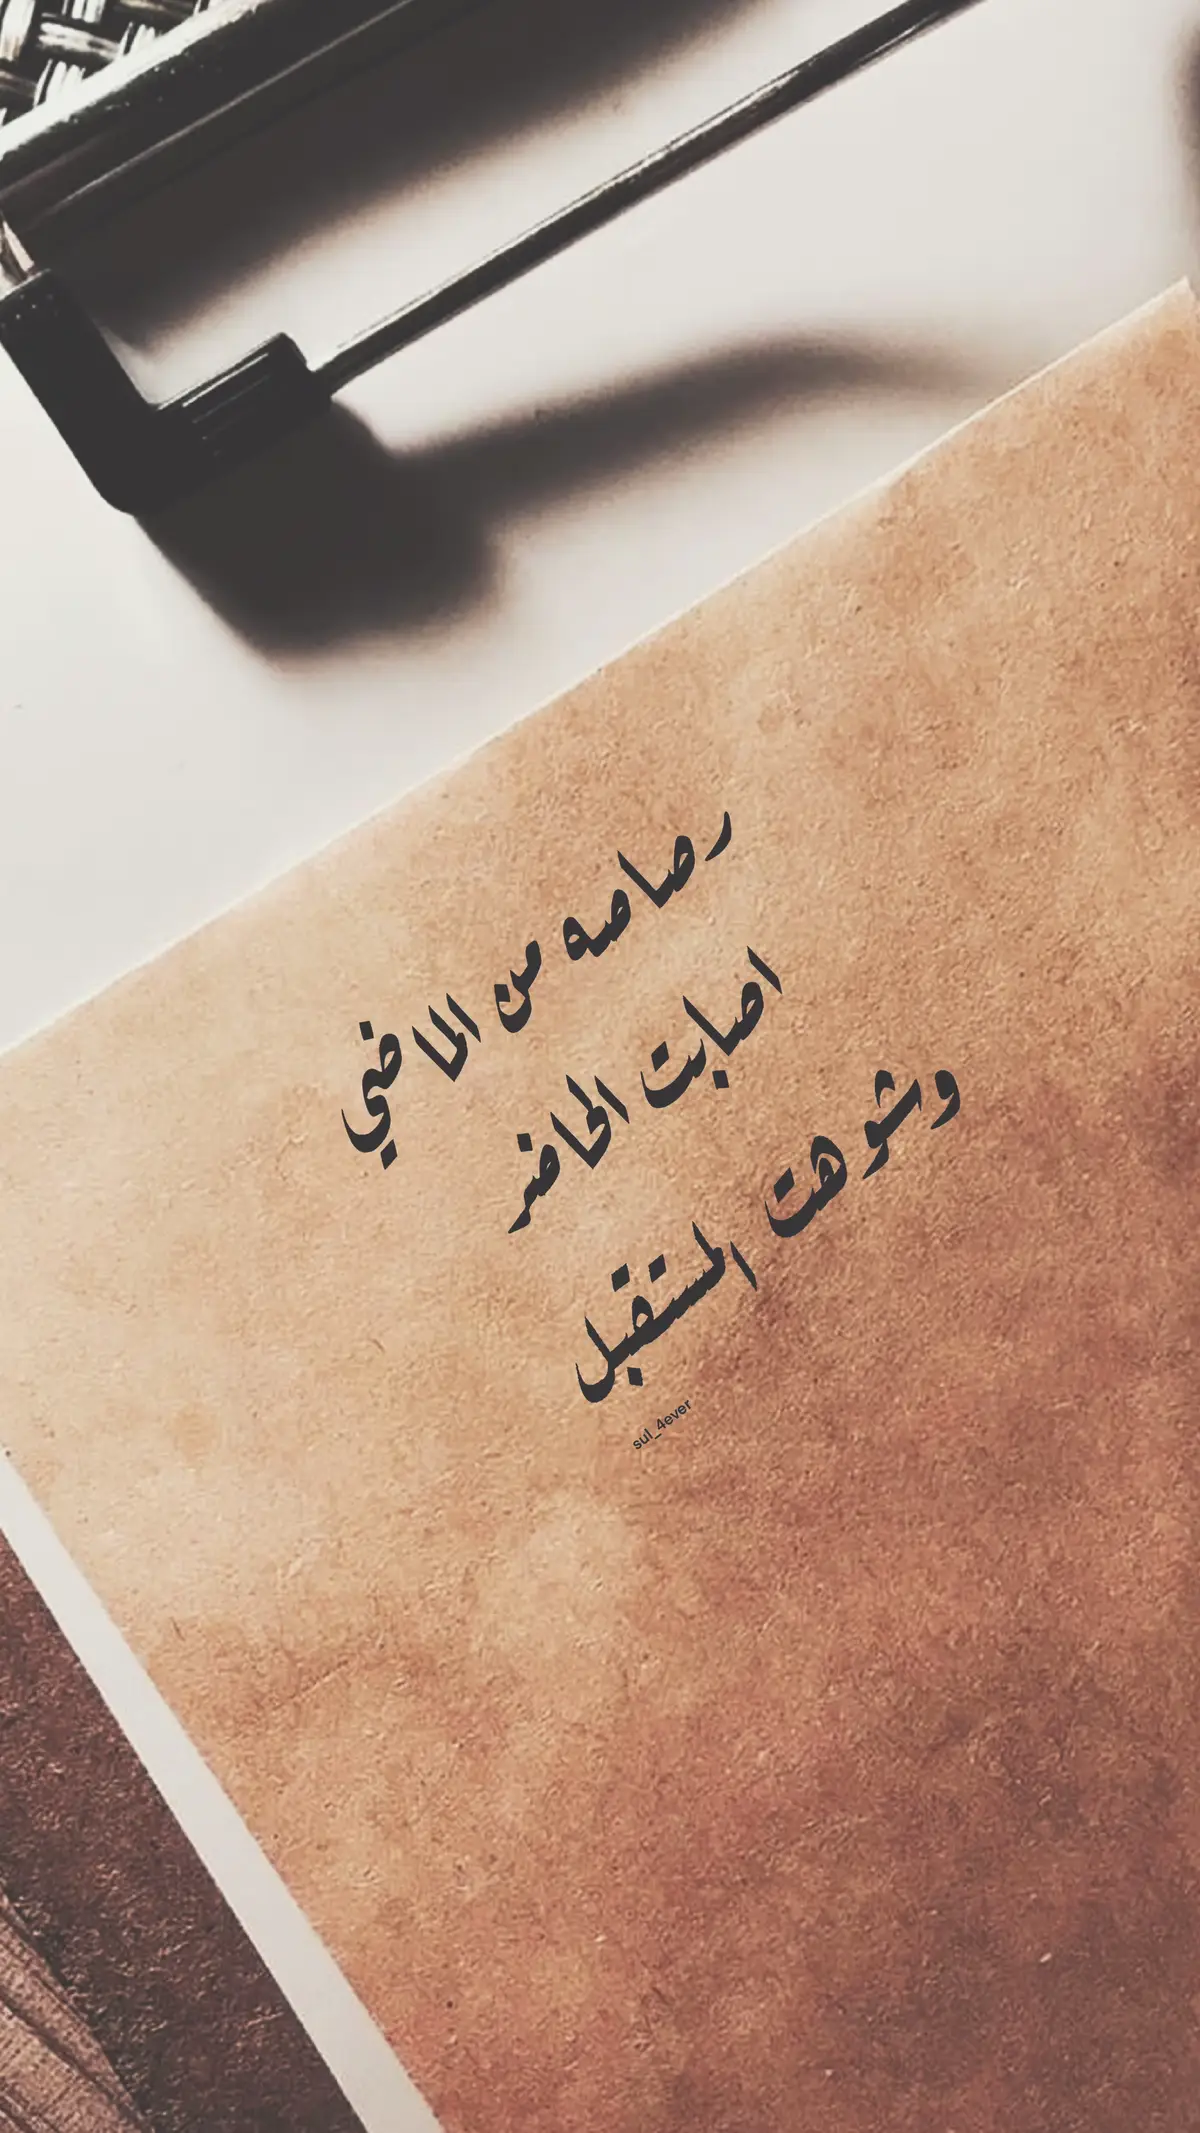 رصاصه من الماضي
اصابت الحاضر
وشوهت المستقبل
sul_4ever